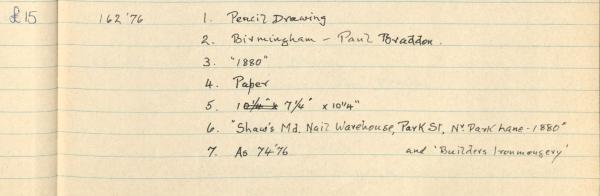 £15 162'76 1. Pencil Drawing
2. Birmingham – Paul Braddon.
3. "1880"
4. Paper
5. 10¼" x 7¼" x 10¼"
6. "Shaw's Md. Nail Warehouse, Park St, Nr. Park Lane - 1880"
7. As 74'76 and 'Builders Ironmongery'